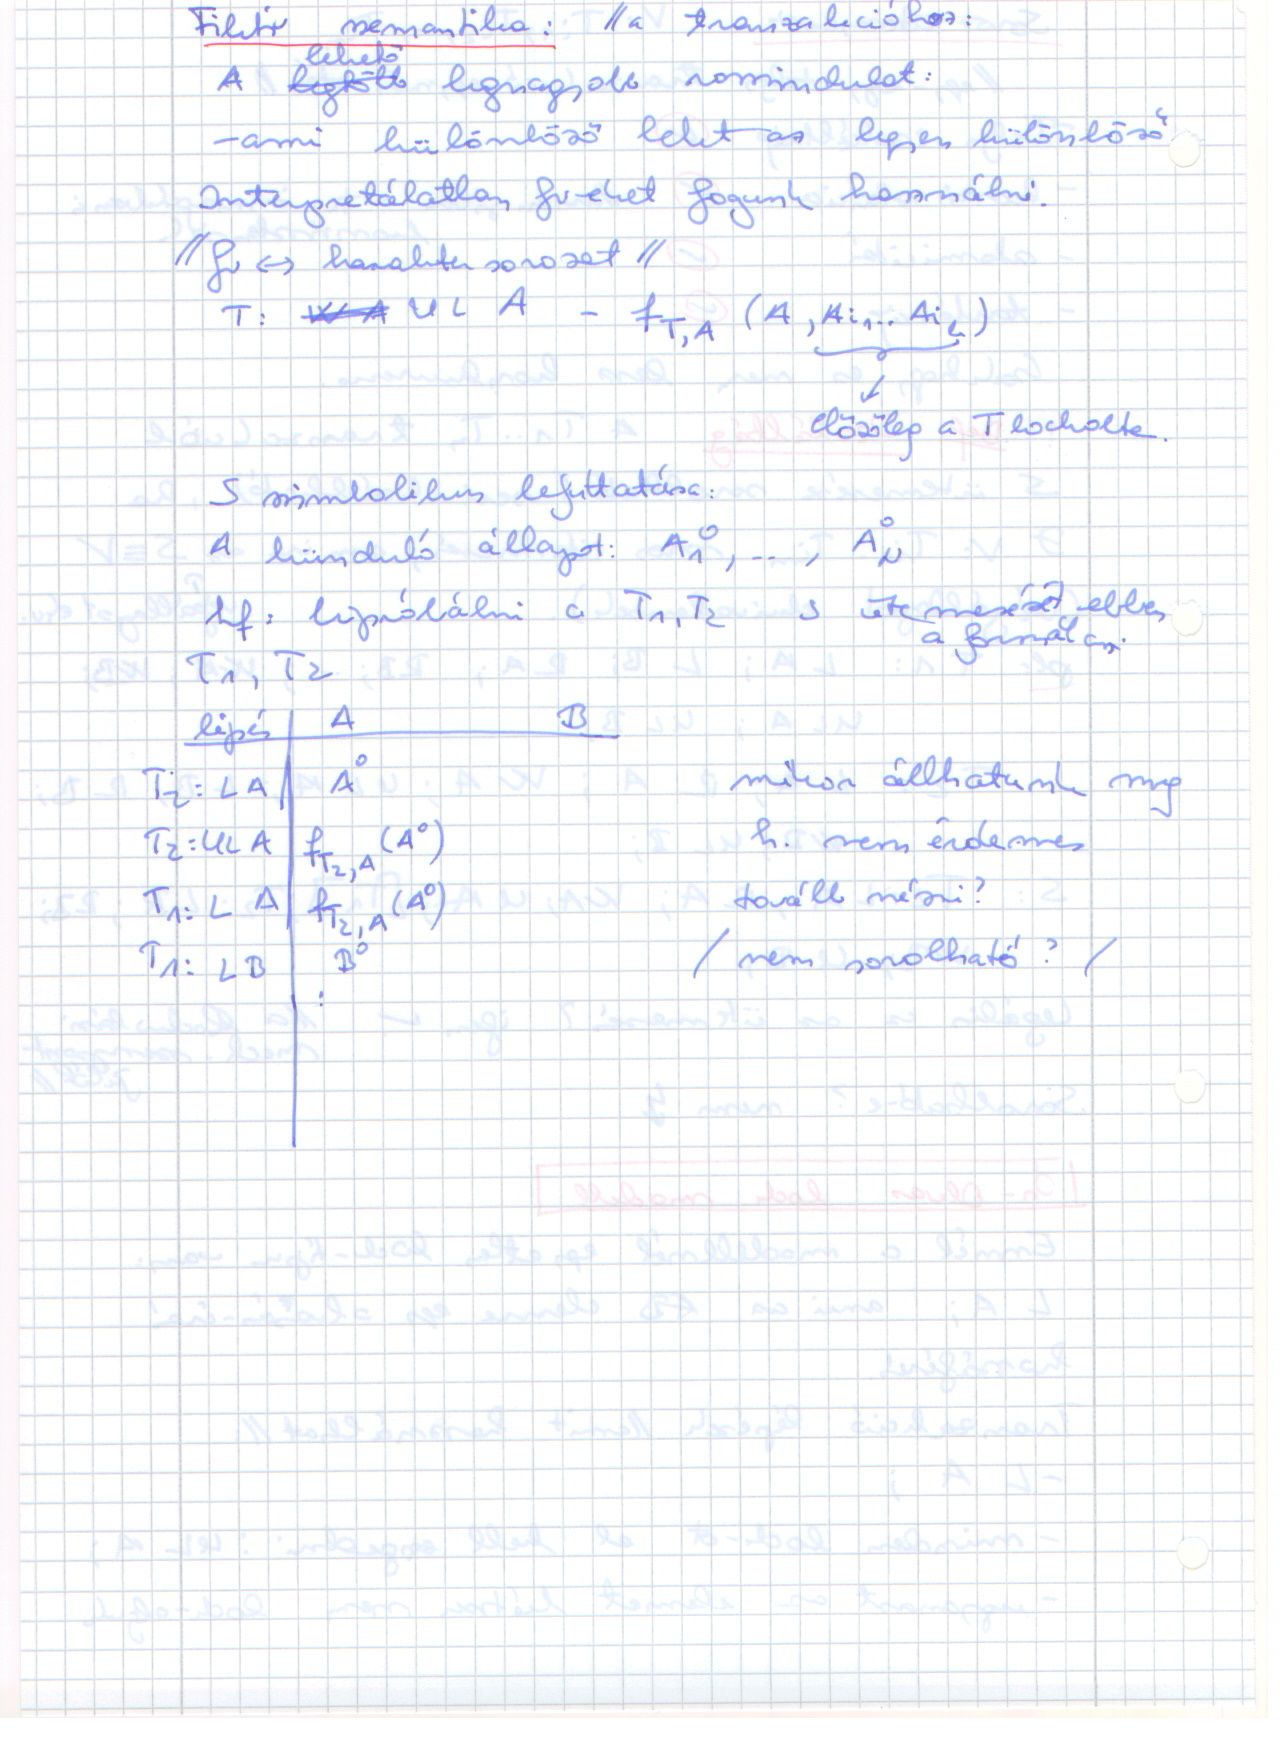 Fiktív szemantika: // a tranzakcióhoz:
A lehető legnagyobb rosszindulat:
- ami különböző lehet az legyen különböző
Interpretálatlan fv-eket fogunk használni.
// fv ↔ karakter sorozat //
T: UL A - f_{T,A} (A, A_{i1} ... A_{ik})
↓
előzőleg a T lockolta.
S szimbolikus lefuttatása:
A kiinduló állapot: A_1^0, ..., A_N^0
hf: kipróbálni a T1, T2 S ütemezését ebben
a formában.
T1, T2
lépés A B
T2: L A A^0
T2: UL A f_{T2,A} (A^0)
T1: L A f_{T2,A} (A^0)
T1: L B B^0
:
mikor állhatunk meg
h. nem érdemes
tovább nézni?
/ nem sorolható? /